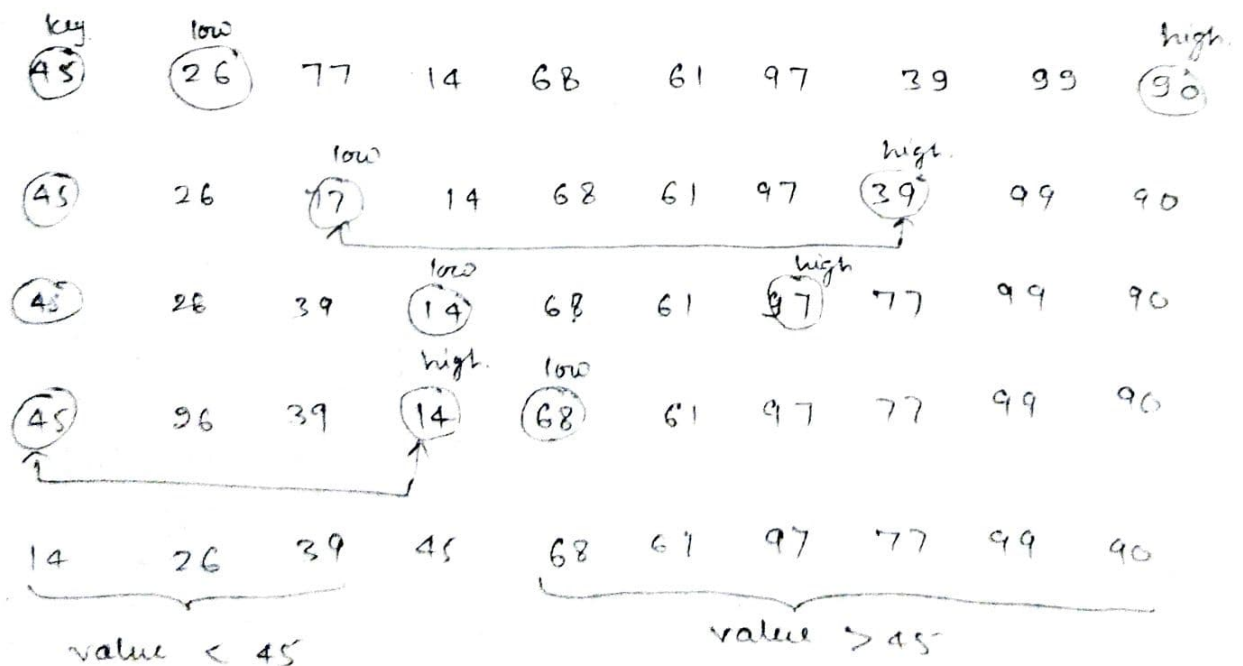 key low high.
45 26 77 14 68 61 97 39 99 90
low high.
45 26 77 14 68 61 97 39 99 90
low high
45 26 39 14 68 61 97 77 99 90
high. low
45 26 39 14 68 61 97 77 99 90
14 26 39 45 68 61 97 77 99 90
value < 45 value > 45